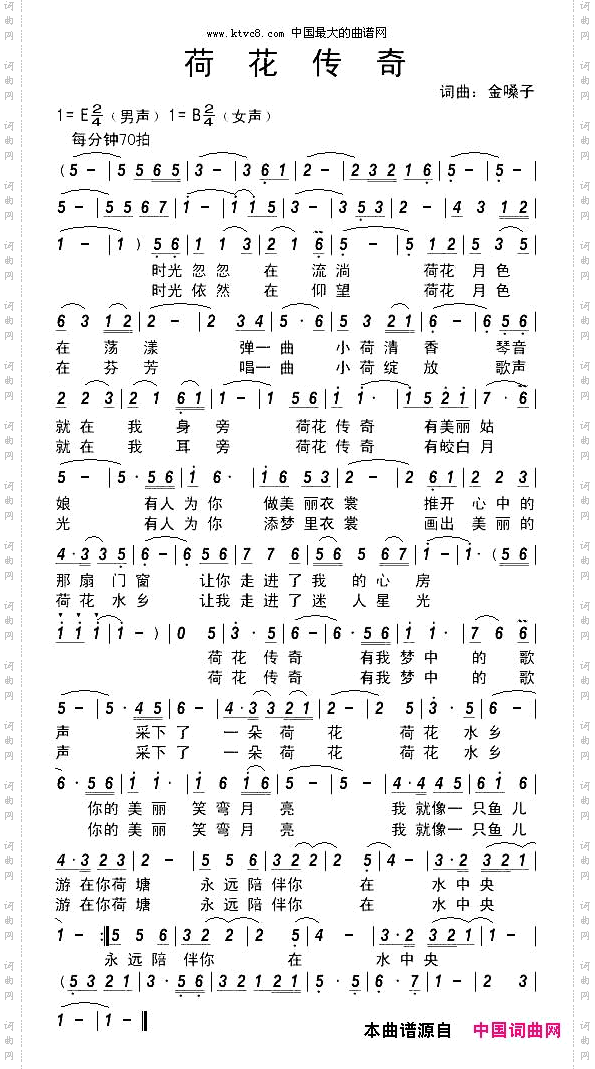 www.ktvc8.com 中国最大的曲谱网
荷花传奇
词曲：金嗓子
1=E 2/4（男声）1=B 2/4（女声）
每分钟70拍
(5 - | 5 5 6 5 | 3 - | 3 6 1 | 2 - | 2 3 2 1 6 | 5 - | 5 - |
5 - | 5 5 6 7 | 1 - | 1 1 5 | 3 - | 3 5 3 | 2 - | 4 3 1 2 |
1 - | 1 ) 5 6 | 1 1 3 | 2 1 6 | 5 - | 5 1 2 | 5 3 5 |
时光 忽忽 在 流淌 荷花 月色
时光 依然 在 仰望 荷花 月色
6 3 1 2 | 2 - | 2 3 4 | 5 · 6 | 5 3 2 1 | 6 - | 6 5 6 |
在 荡漾 弹一曲 小荷清香 琴音
在 芬芳 唱一曲 小荷绽放 歌声
2 2 3 | 2 3 6 1 | 1 - | 5 5 6 | 1 · 1 | 1 5 2 1 | 7 · 6 |
就在我身旁 荷花传奇 有美丽姑
就在我耳旁 荷花传奇 有皎白月
5 - | 5 · 5 6 | 1 6 · | 5 5 6 5 3 | 2 - | 2 6 1 | 2 2 3 |
娘 有人为你 做美丽衣裳 推开心中的
光 有人为你 添梦里衣裳 画出美丽的
4 · 3 3 5 | 6 - | 6 5 6 | 7 7 6 | 5 5 6 6 7 | 1 - | 1 · ( 5 6 |
那扇门窗 让你走进了我的心房
荷花水乡 让我走进了迷人星光
1 1 1 | 1 - ) | 0 5 | 3 · 5 | 6 - | 6 · 5 6 | 1 1 · | 7 6 |
荷花传奇 有我梦中的歌
荷花传奇 有我梦中的歌
5 - | 5 · 4 5 | 6 - | 6 · 4 3 | 3 2 1 | 2 - | 5 · 5 | 3 2 |
声 采下了 一朵荷花 荷花水乡
声 采下了 一朵荷花 荷花水乡
6 · 5 6 | 1 1 · | 1 · 6 | 5 6 | 5 - | 5 - | 4 · 4 4 5 | 6 1 6 |
你的美丽 笑弯月亮 我就像一只鱼儿
你的美丽 笑弯月亮 我就像一只鱼儿
4 · 3 2 3 | 2 - | 5 5 6 | 3 2 2 | 2 5 | 4 - | 3 · 2 | 3 2 1 |
游在你荷塘 永远陪伴你 在 水中央
游在你荷塘 永远陪伴你 在 水中央
1 - :‖ 5 5 6 | 3 2 2 | 2 5 | 4 - | 3 · 2 | 3 2 1 | 1 - |
永远陪伴你 在 水中央
(5 3 2 3 | 5 · 6 | 3 2 1 2 1 | 5 · 3 | 5 3 2 1 | 1 - | 2 3 |
1 - | 1 - ‖
本曲谱源自 中国词曲网
词曲网